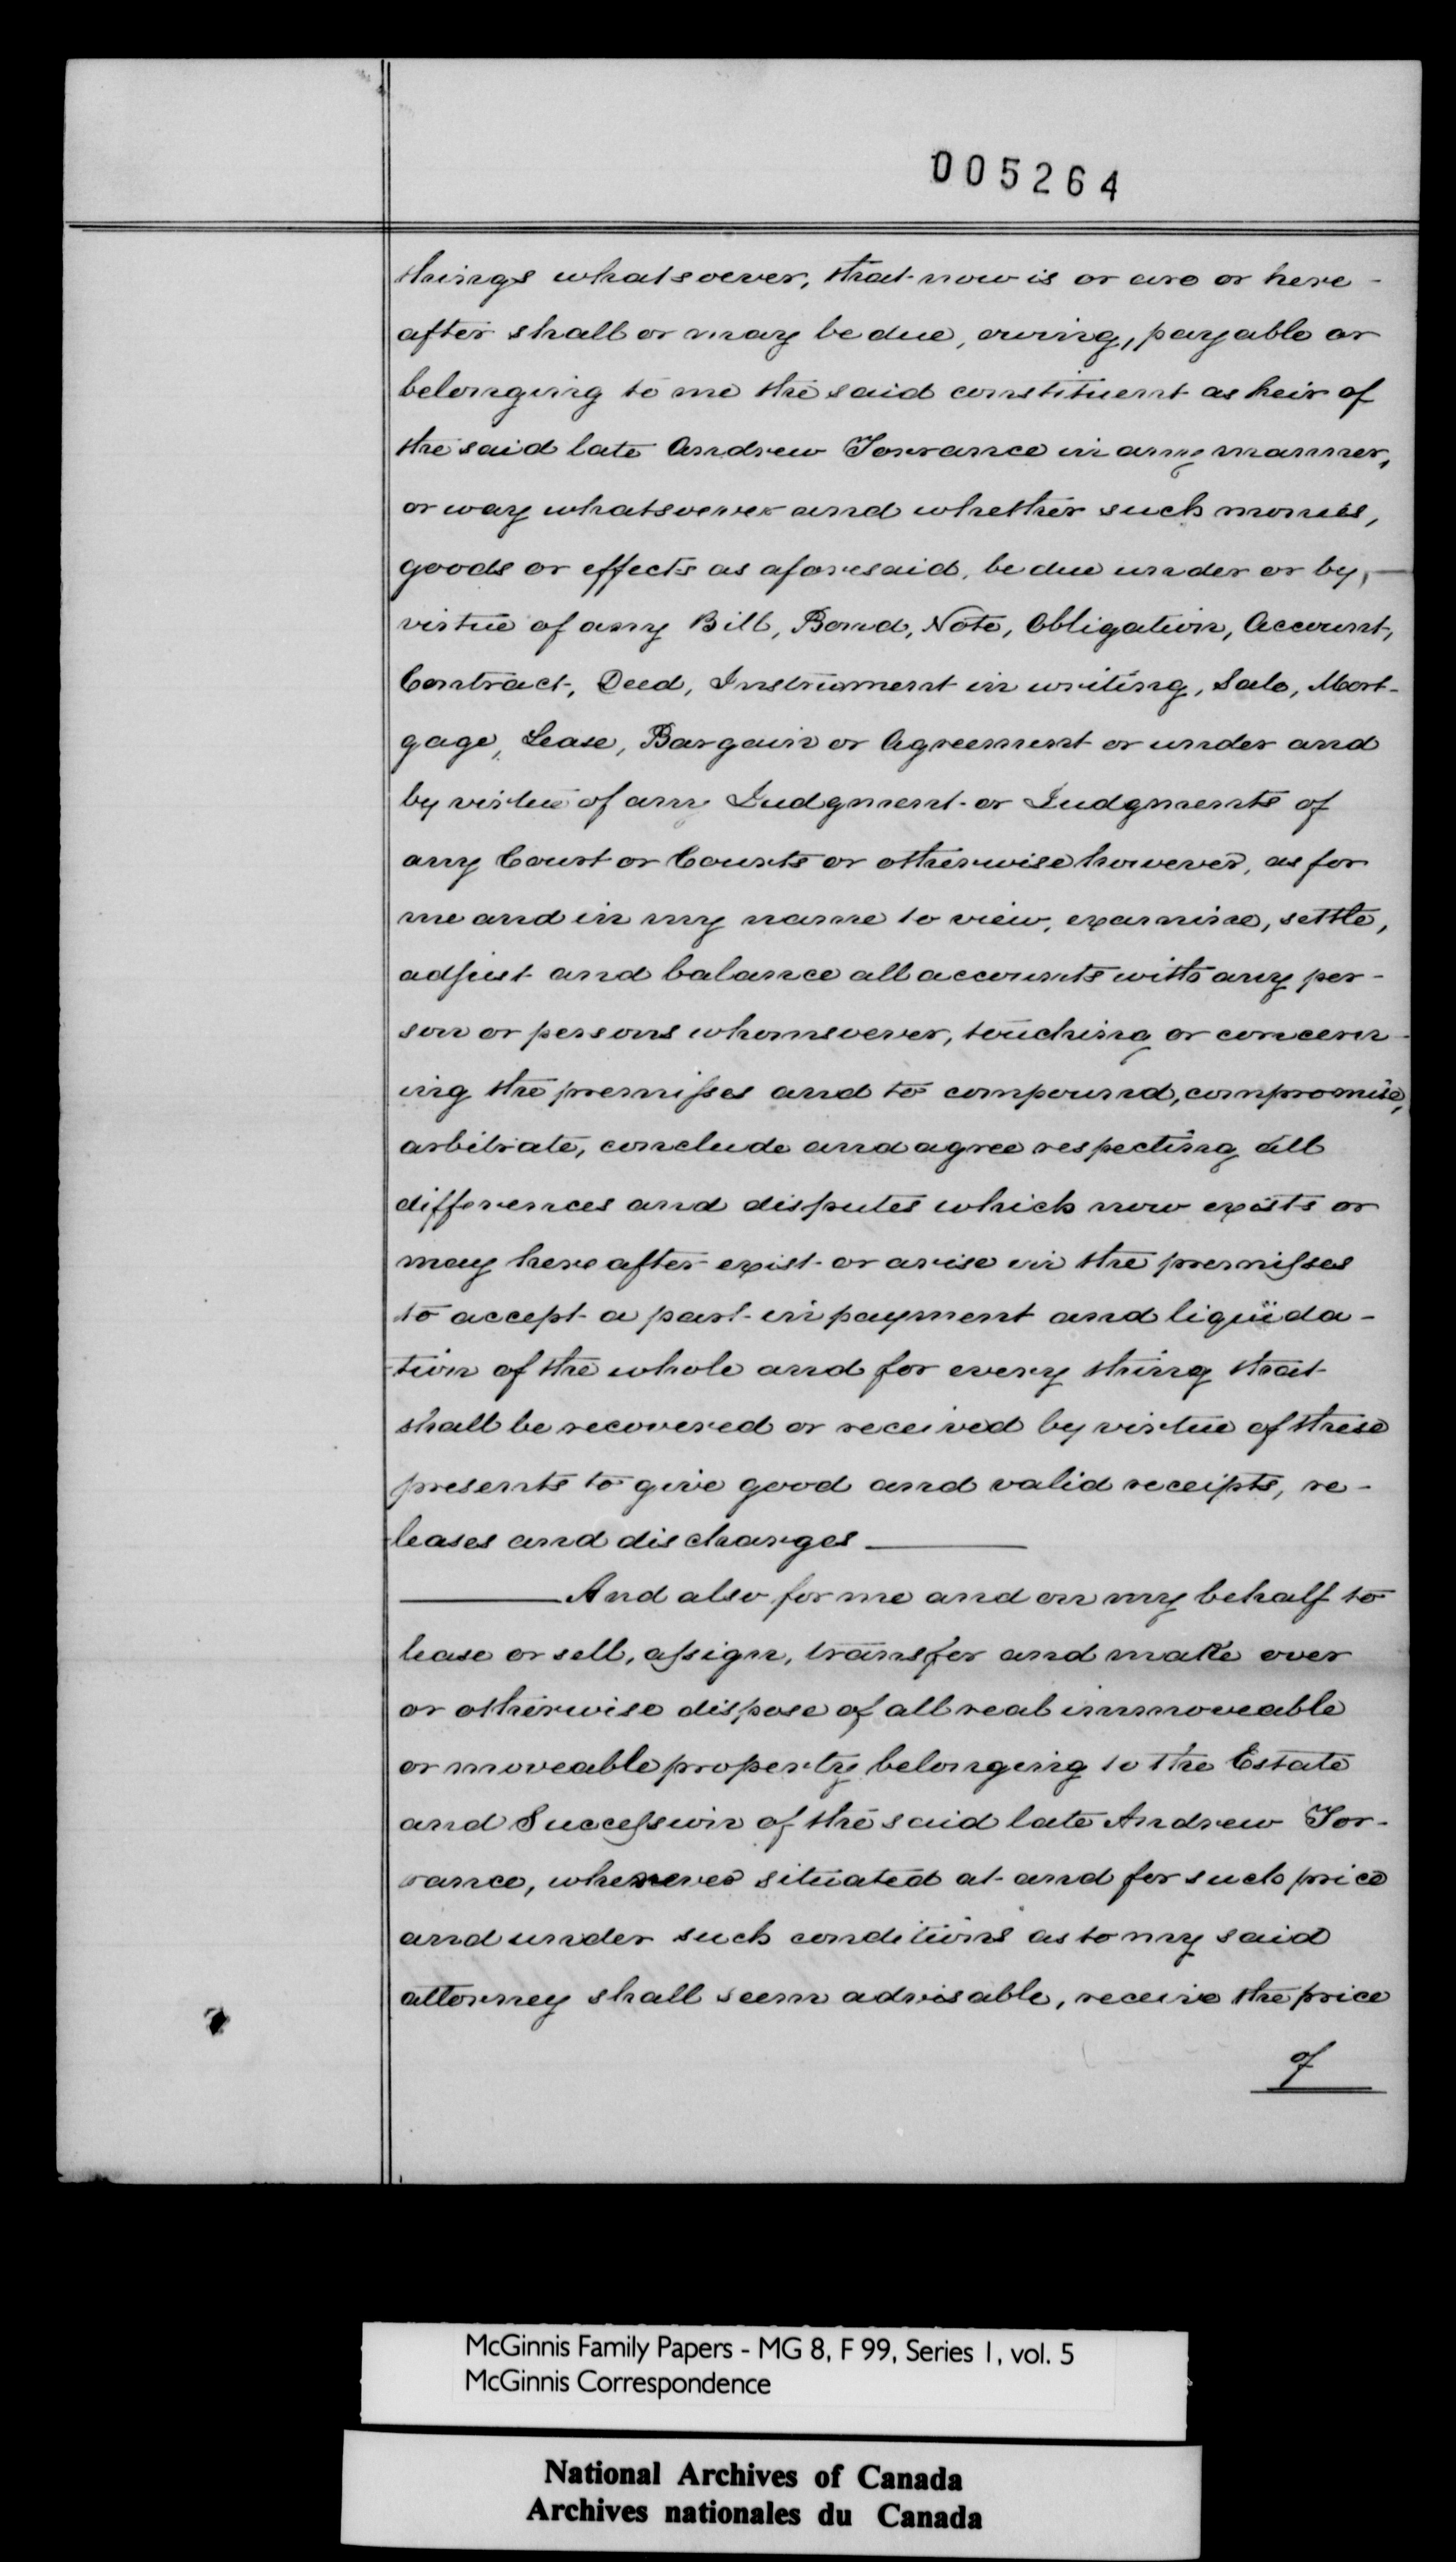 005264
things whatsoever, that now is or are or here-
after shall or may be due, owing, payable or
belonging to me the said constituent as heir of
the said late Andrew Torrance in any manner,
or way whatsoever and whether such monies,
goods or effects as aforesaid, be due under or by,—
virtue of any Bill, Bond, Note, Obligation, Account,
Contract, Deed, Instrument in writing, Sale, Mort-
gage, Lease, Bargain or Agreement or under and
by virtue of any Judgment or Judgments of
any Court or Courts or otherwise however, as for
me and in my name to view, examine, settle,
adjust and balance all accounts with any per-
son or persons whomsoever, touching or concern-
ing the premisses and to compound, compromise,
arbitrate, conclude and agree respecting all
differences and disputes which now exists or
may hereafter exist or arise in the premisses
to accept a part in payment and liquida-
tion of the whole and for every thing that
shall be recovered or received by virtue of these
presents to give good and valid receipts, re-
leases and discharges ———
——— And also for me and on my behalf to
lease or sell, assign, transfer and make over
or otherwise dispose of all real immoveable
or moveable property belonging to the Estate
and Succession of the said late Andrew Tor-
rance, wherever situated at and for such price
and under such conditions as to my said
attorney shall seem advisable, receive the price
of
McGinnis Family Papers - MG 8, F 99, Series 1, vol. 5
McGinnis Correspondence
National Archives of Canada
Archives nationales du Canada